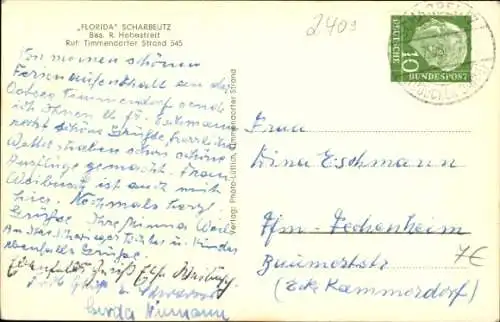 „FLORIDA" SCHARBEUTZ
Bes. R. Hebestreit
Ruf: Timmendorfer Strand 545
Von meinen schönen
Ferienaufenthalt an der
Ostsee Timmendorf sende
ich Ihnen u. Fr. Eschmann
recht schöne Grüße, herrliches
Wetter haben schon schöne
Ausflüge gemacht. Frau
Weibusch ist auch mit
hier. Nochmals herzl.
Grüße. Ihre Minna Weil
An Ihre Schwieger Tochter u. Kinder
ebenfalls Grüße.
Ebenfalls Gruß
Gerda Niemann
Verlag: Photo-Lüthi, Timmendorfer Strand
2409
10
DEUTSCHE
BUNDESPOST
Frau
Dina Eschmann
Ffm-Fechenheim
Baumertstr
7€
(Ecke Kammerdorf)